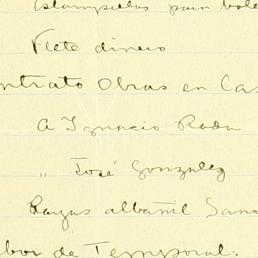 Estampillas para bole
Flete dinero
ntrato Obras en Cas
A Ignacio Rada
" José Gonzalez
Rayas albañil Sano
bor de Temporal.